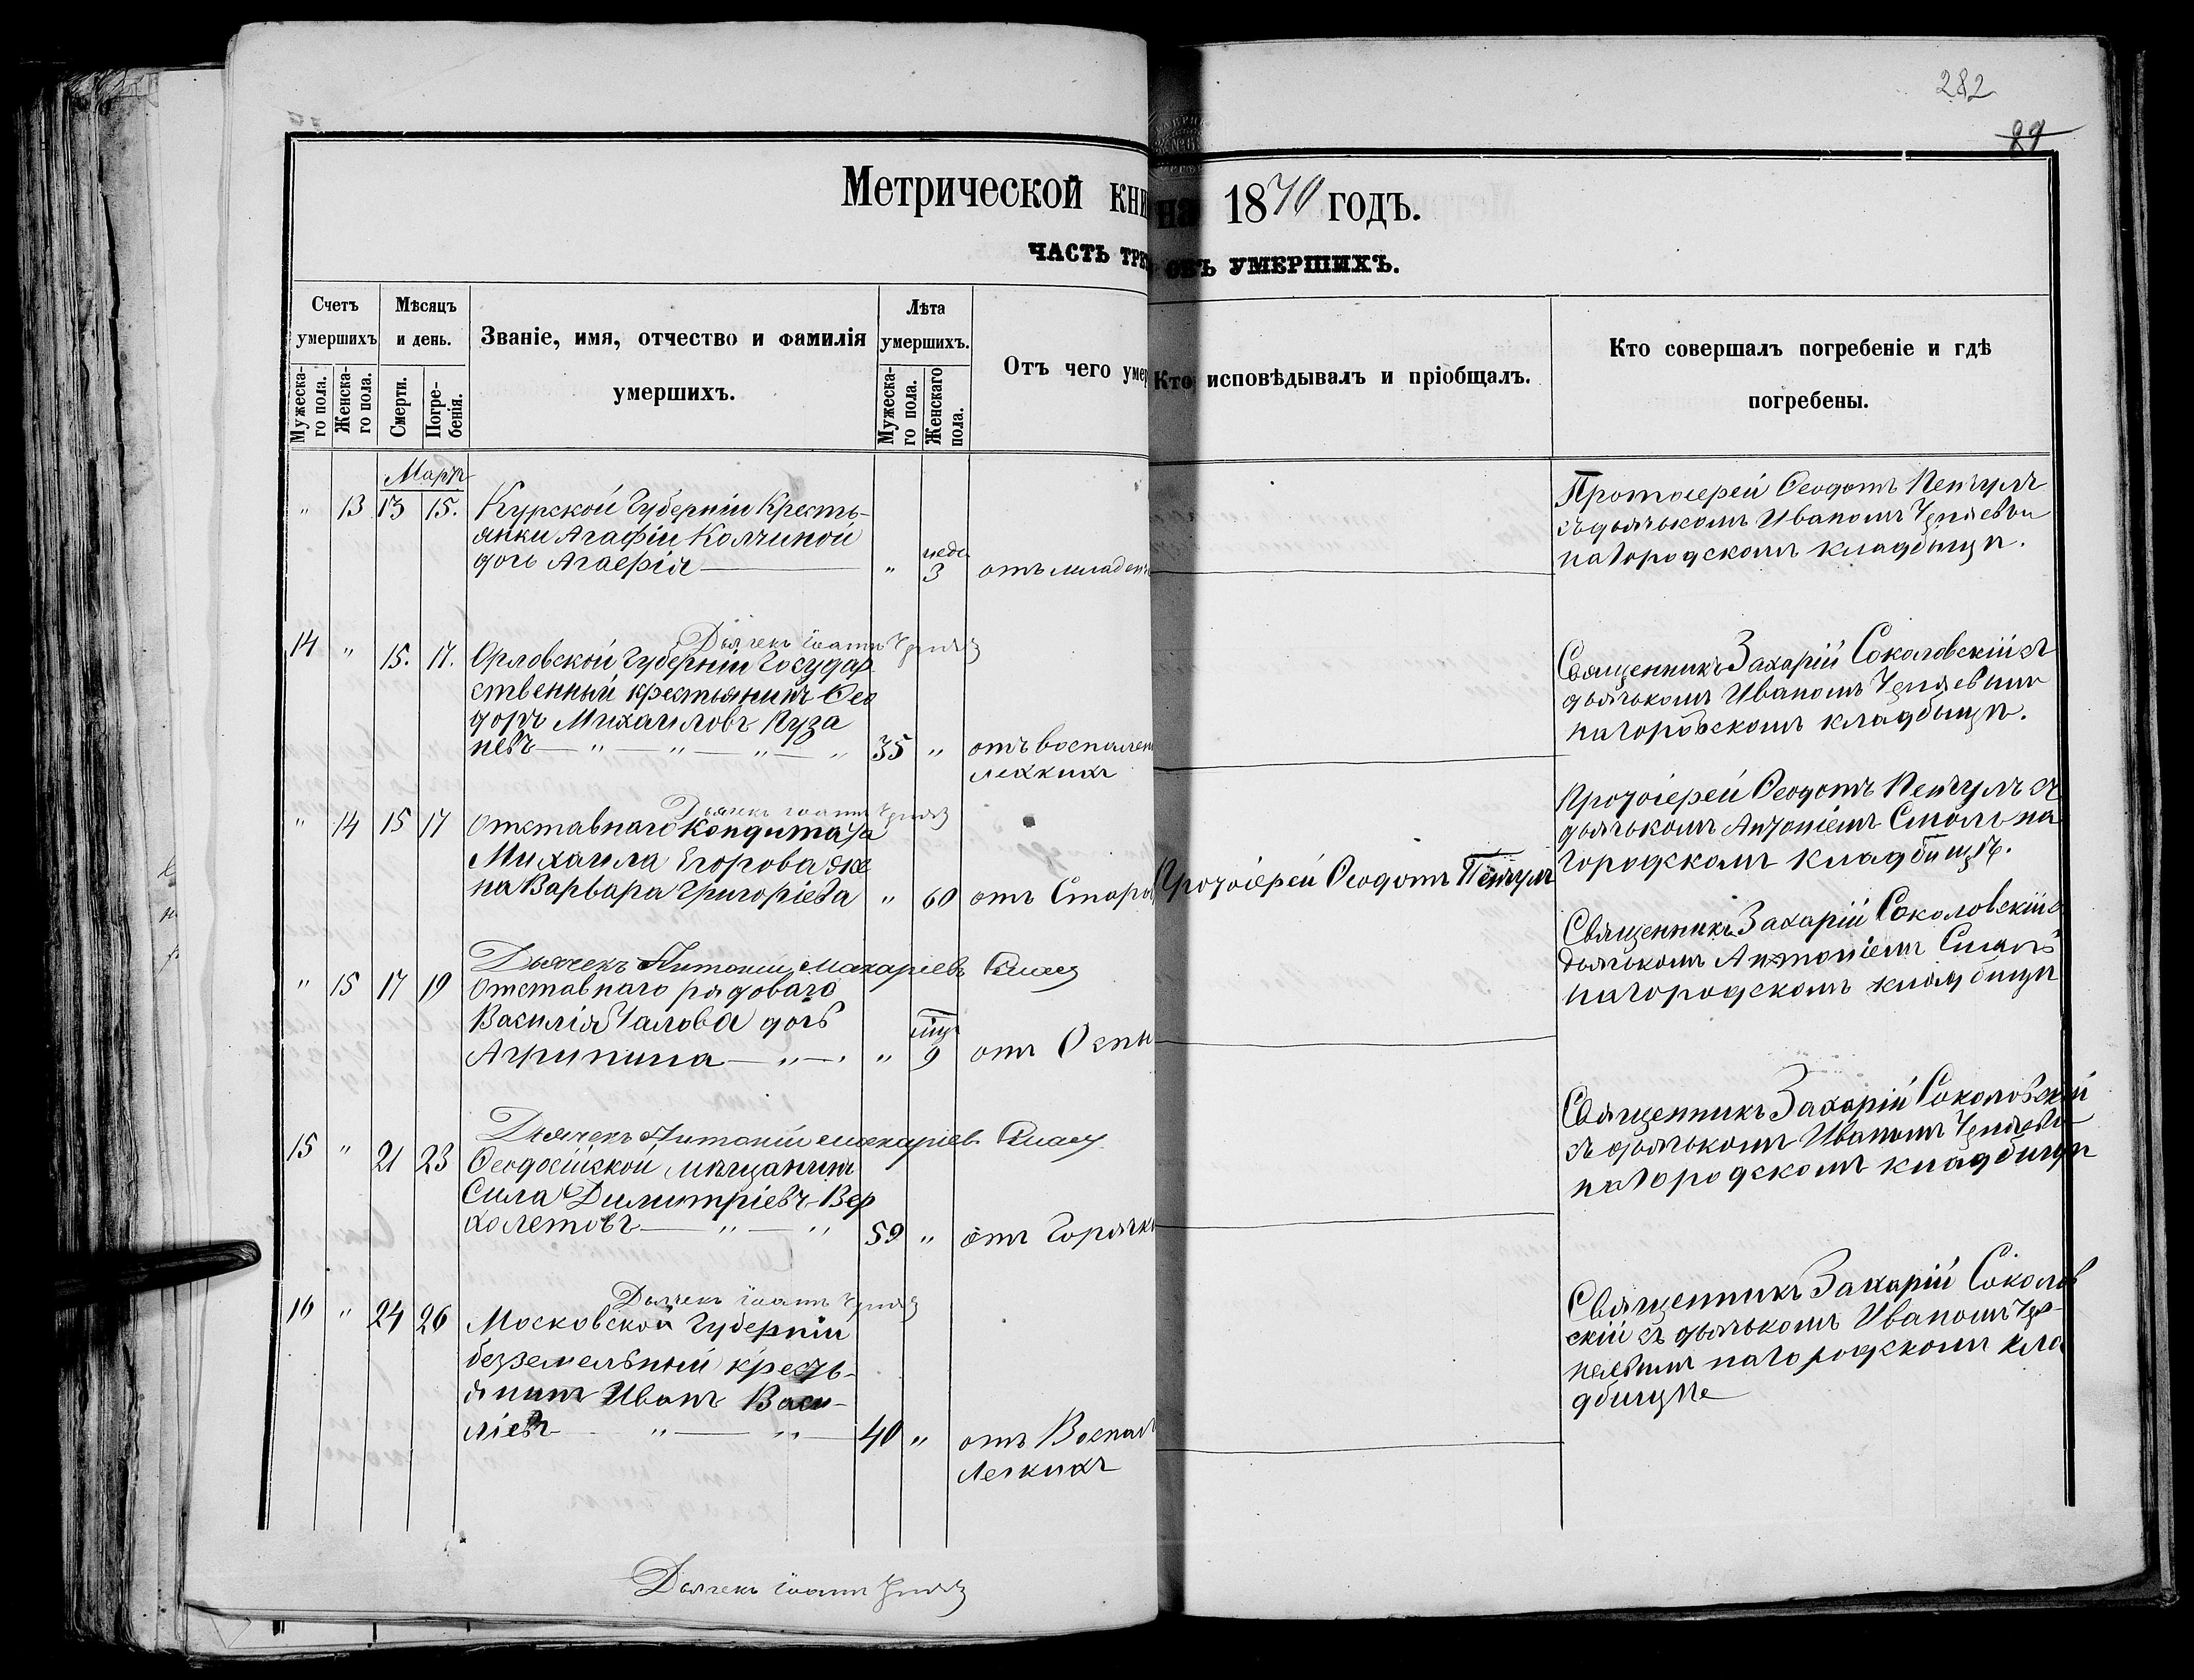 282
89
Метрической кни на 1870 годъ.
ЧАСТЬ ТРЕ ОБЪ УМЕРШИХЪ.
Счетъ умершихъ
Мужеска-го пола.
Женска-го пола.
Мѣсяцъ и день.
Смерти.
Погре-бенія.
Званіе, имя, отчество и фамилія
умершихъ.
Лѣта умершихъ.
Мужеска-го пола.
Женскаго пола.
Отъ чего умер
Кто исповѣдывалъ и пріобщалъ.
Кто совершалъ погребеніе и гдѣ
погребены.
Мартъ
" 13 13 15. Курской Губерніи Кресть-
янки Агафіи Колчиной
дочь Агаефія " неде 3 отъ младен
Протоіерей Ѳеодотъ Пенчулъ
съ дьячькомъ Иваномъ
на Городскомъ кладбищѣ.
Дьячекъ Іоаннъ
14 " 15. 17. Орловской Губерніи Государ
ственный крестьянинъ Ѳео
доръ Михаиловъ Пуза
невъ — " — " — " — " 35 " отъ воспален
легкихъ
Священникъ Захарій Соколовскій съ
дьячькомъ Иваномъ
на городскомъ кладбищѣ.
Дьячекъ Іоаннъ
" 14 15 17 Отставнаго Кондитара
Михаила Егорова же
на Варвара Григоріева " 60 отъ Старо
Протоіерей Ѳеодотъ Пенчулъ
Протоіерей Ѳеодотъ Пенчулъ съ
дьячькомъ Антоніемъ Смаль на
Городскомъ кладбищѣ.
Дьячекъ Антоній Макаріевъ
" 15 17 19 Отставнаго рядоваго
Василія Чалова дочь
Агрипина — " — " мѣц 9 отъ Оспы
Священникъ Захарій Соколовскій съ
дьячькомъ Антоніемъ Смаль
на городскомъ кладбищѣ
Дьячекъ Антоній Макаріев
15 " 21 23 Ѳеодосійской мѣщанинъ
Сила Димитріевъ Вер
холетовъ — " — " 59 " отъ Горячк
Священникъ Захарій Соколовскій
съ дьячькомъ Иваномъ
на городскомъ кладбищѣ
Дьячекъ Іоаннъ
16 " 24 26 Московской Губерніи
безземельный кресть-
янинъ Иванъ Васи-
ліевъ — " — " — 40 " отъ Воспал
Легкихъ
Священникъ Захарій Соколов
скій съ дьячькомъ Иваномъ
на городскомъ кла
дбищѣ
Дьячекъ Іоаннъ